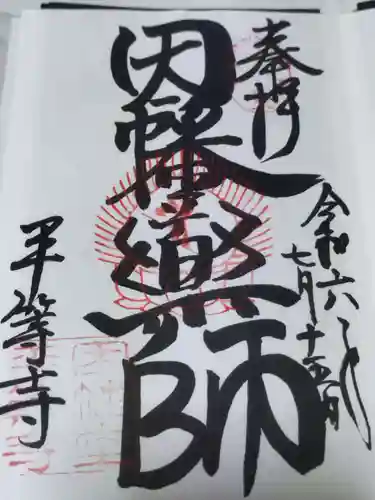 奉拝
令和六年
七月十五日
因幡薬師
平等寺